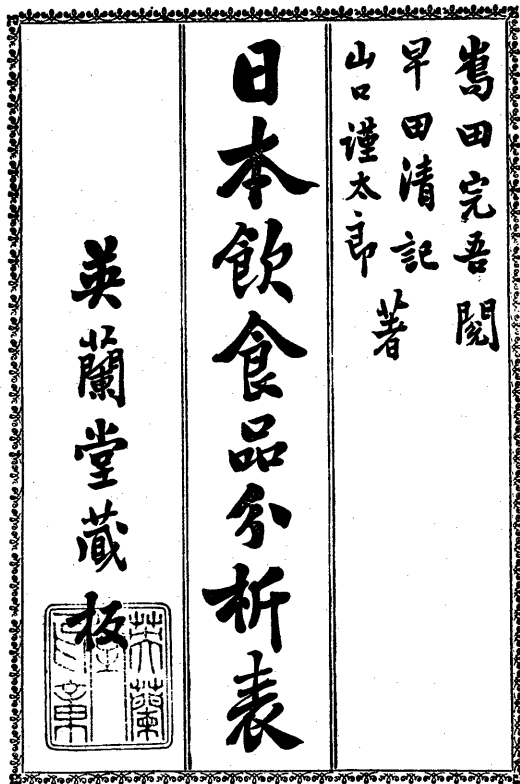 嶌田完吾閲
早田清記
山口謹太郎
著
日本飲食品分析表
英蘭堂蔵板
英蘭堂之印章